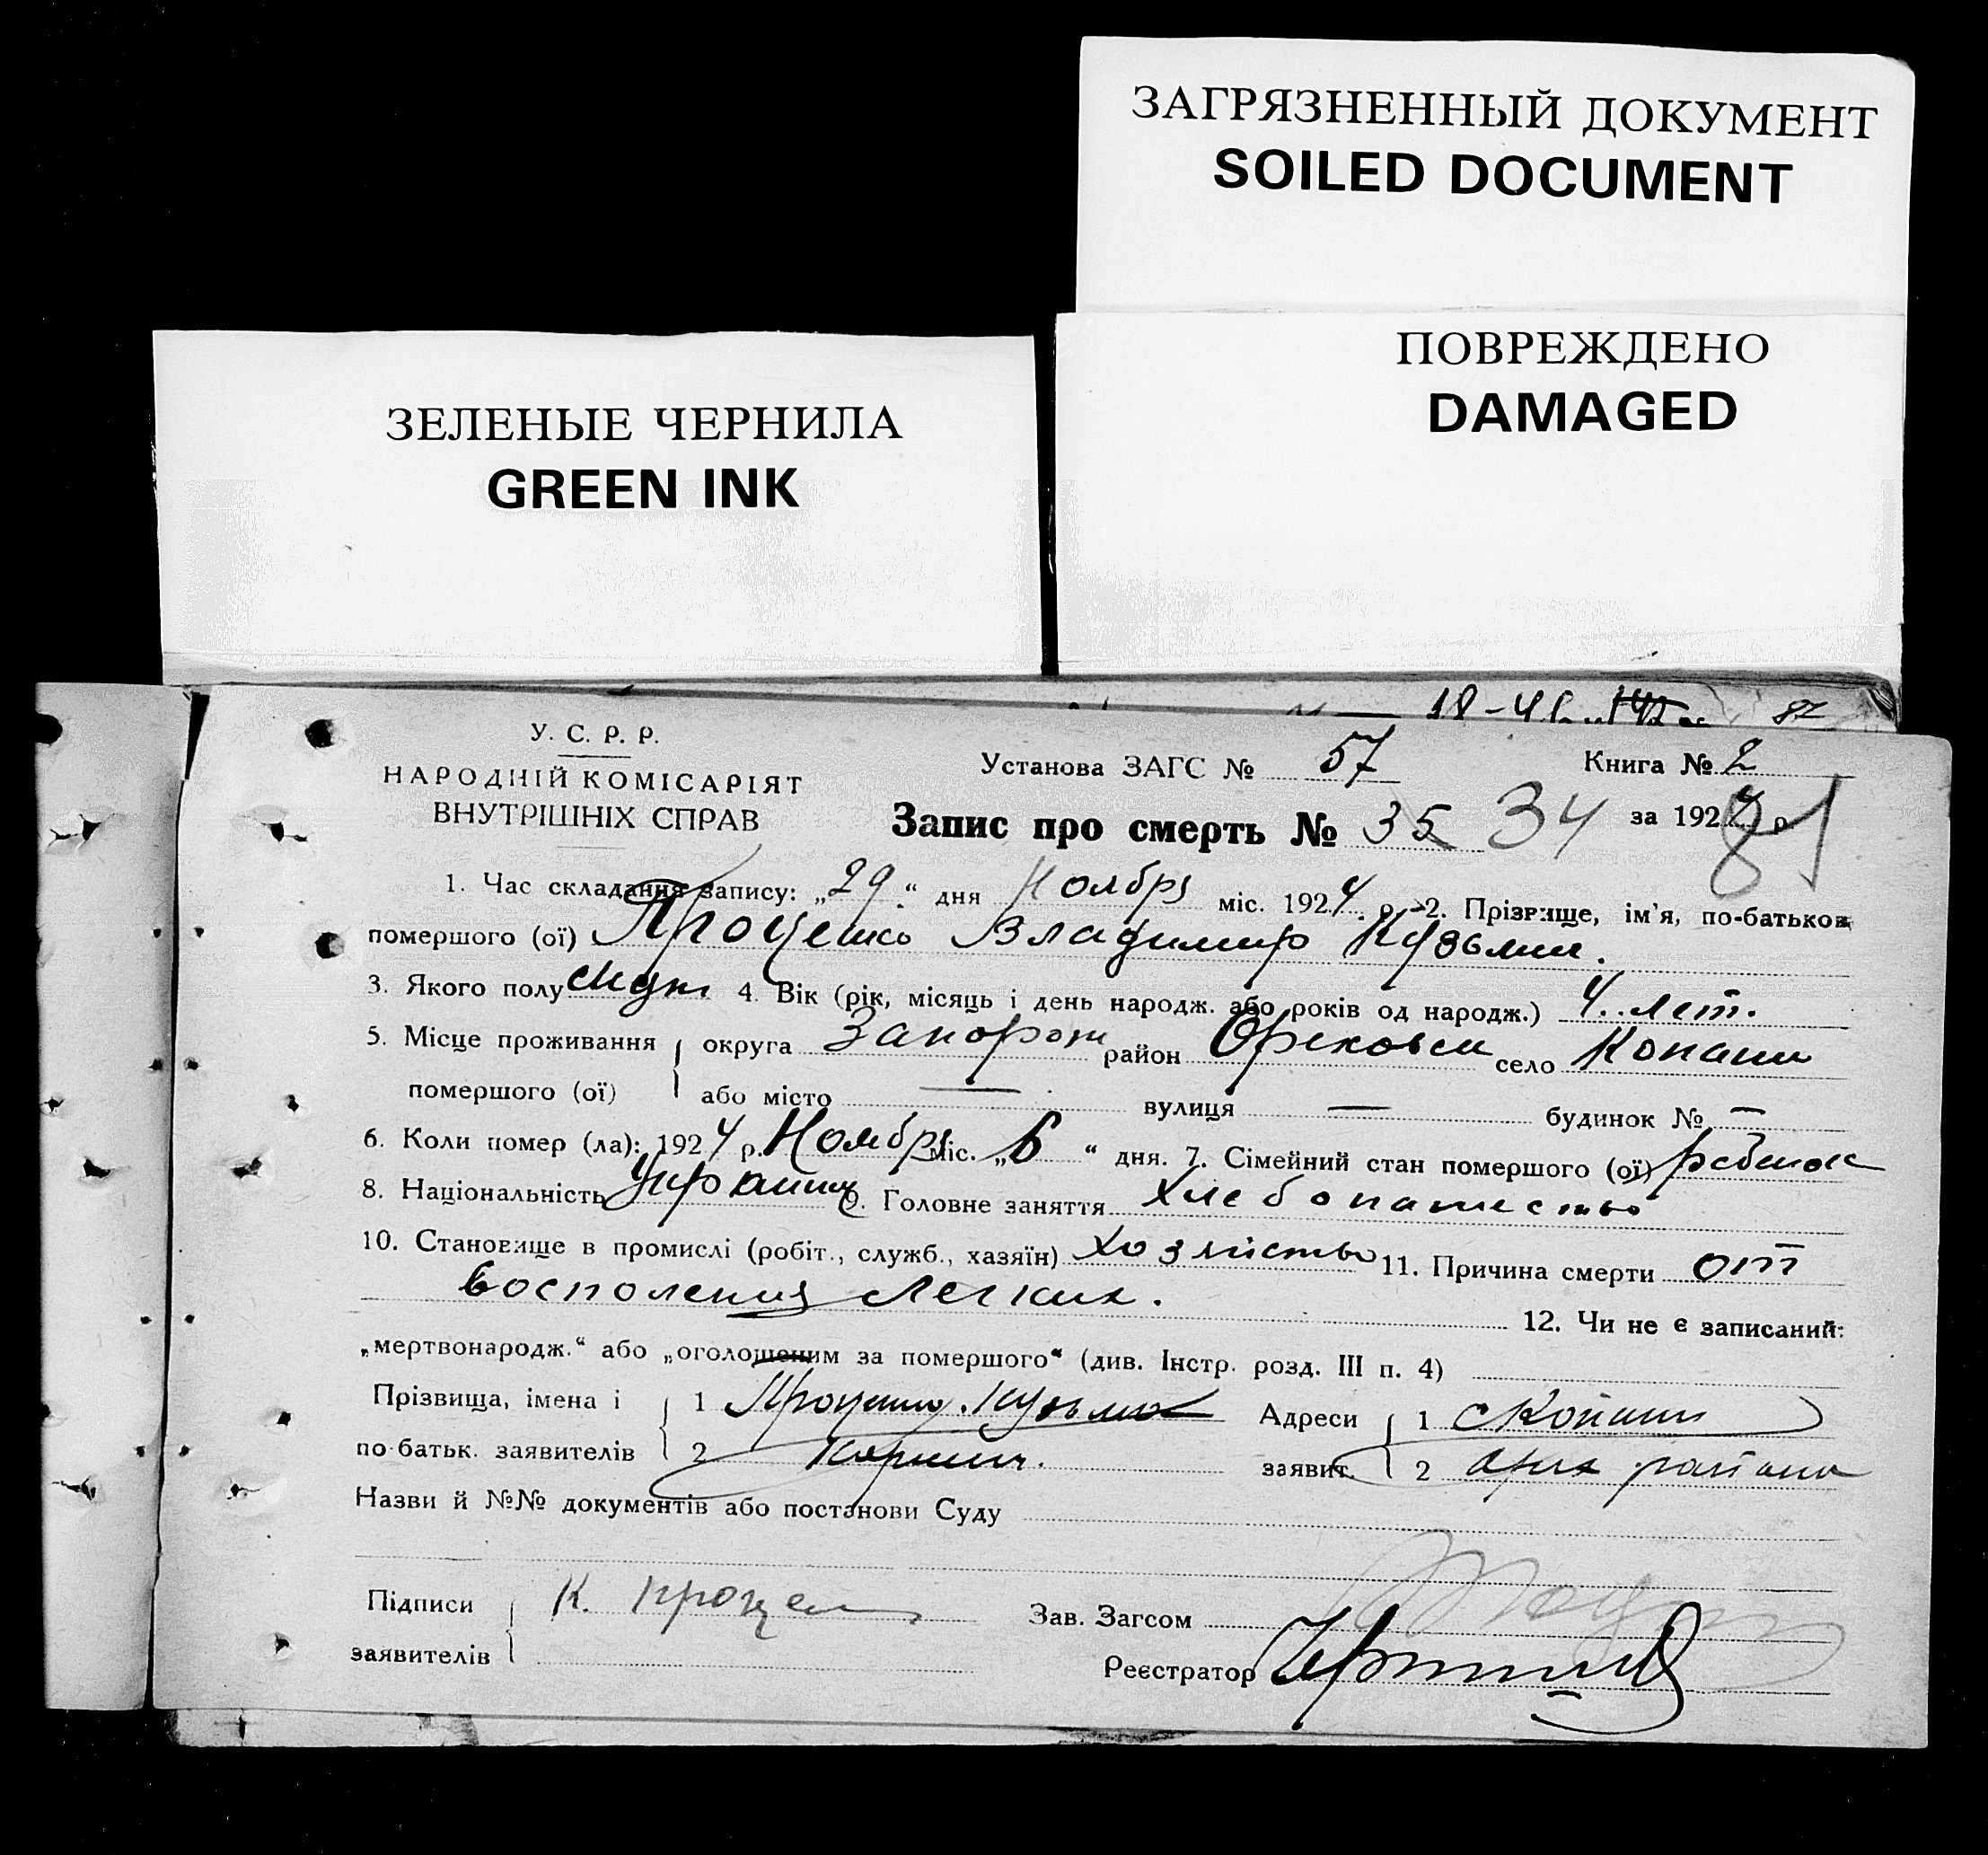 ЗАГРЯЗНЕННЫЙ ДОКУМЕНТ
SOILED DOCUMENT
ПОВРЕЖДЕНО
DAMAGED
ЗЕЛЕНЫЕ ЧЕРНИЛА
GREEN INK
У. С. Р. Р.
НАРОДНІЙ КОМІСАРІЯТ
ВНУТРІШНІХ СПРАВ
Установа ЗАГС № 57 Книга № 2
Запис про смерть № 35 34 за 1924 р. 81
1. Час складання запису: „29“ дня Ноября міс. 1924 р. 2. Прізвище, ім'я, по-батькові
помершого (ої) Проценко Владимир Кузьмич.
3. Якого полу Муж. 4. Вік (рік, місяць і день народж. або років од народж.) 4 лет.
5. Місце проживання округа Запорож район Ореховск село Копани
помершого (ої) або місто — вулиця — будинок № —
6. Коли помер (ла): 1924 р. Ноября міс. „6“ дня. 7. Сімейний стан помершого (ої) ребенок
8. Національність Украин 9. Головне заняття хлебопашество
10. Становище в промислі (робіт., служб., хазяїн) хозяйство 11. Причина смерти от
восполения легких.
12. Чи не є записаний:
„мертвонародж.“ або „оголошеним за помершого“ (див. Інстр. розд. III п. 4)
Прізвища, імена і 1 Проценко Кузьма Адреси 1 с Копани
по-батьк. заявителів 2 заявит. 2 района
Назви й №№ документів або постанови Суду
Підписи К. Процен
заявителів
Зав. Загсом
Реєстратор